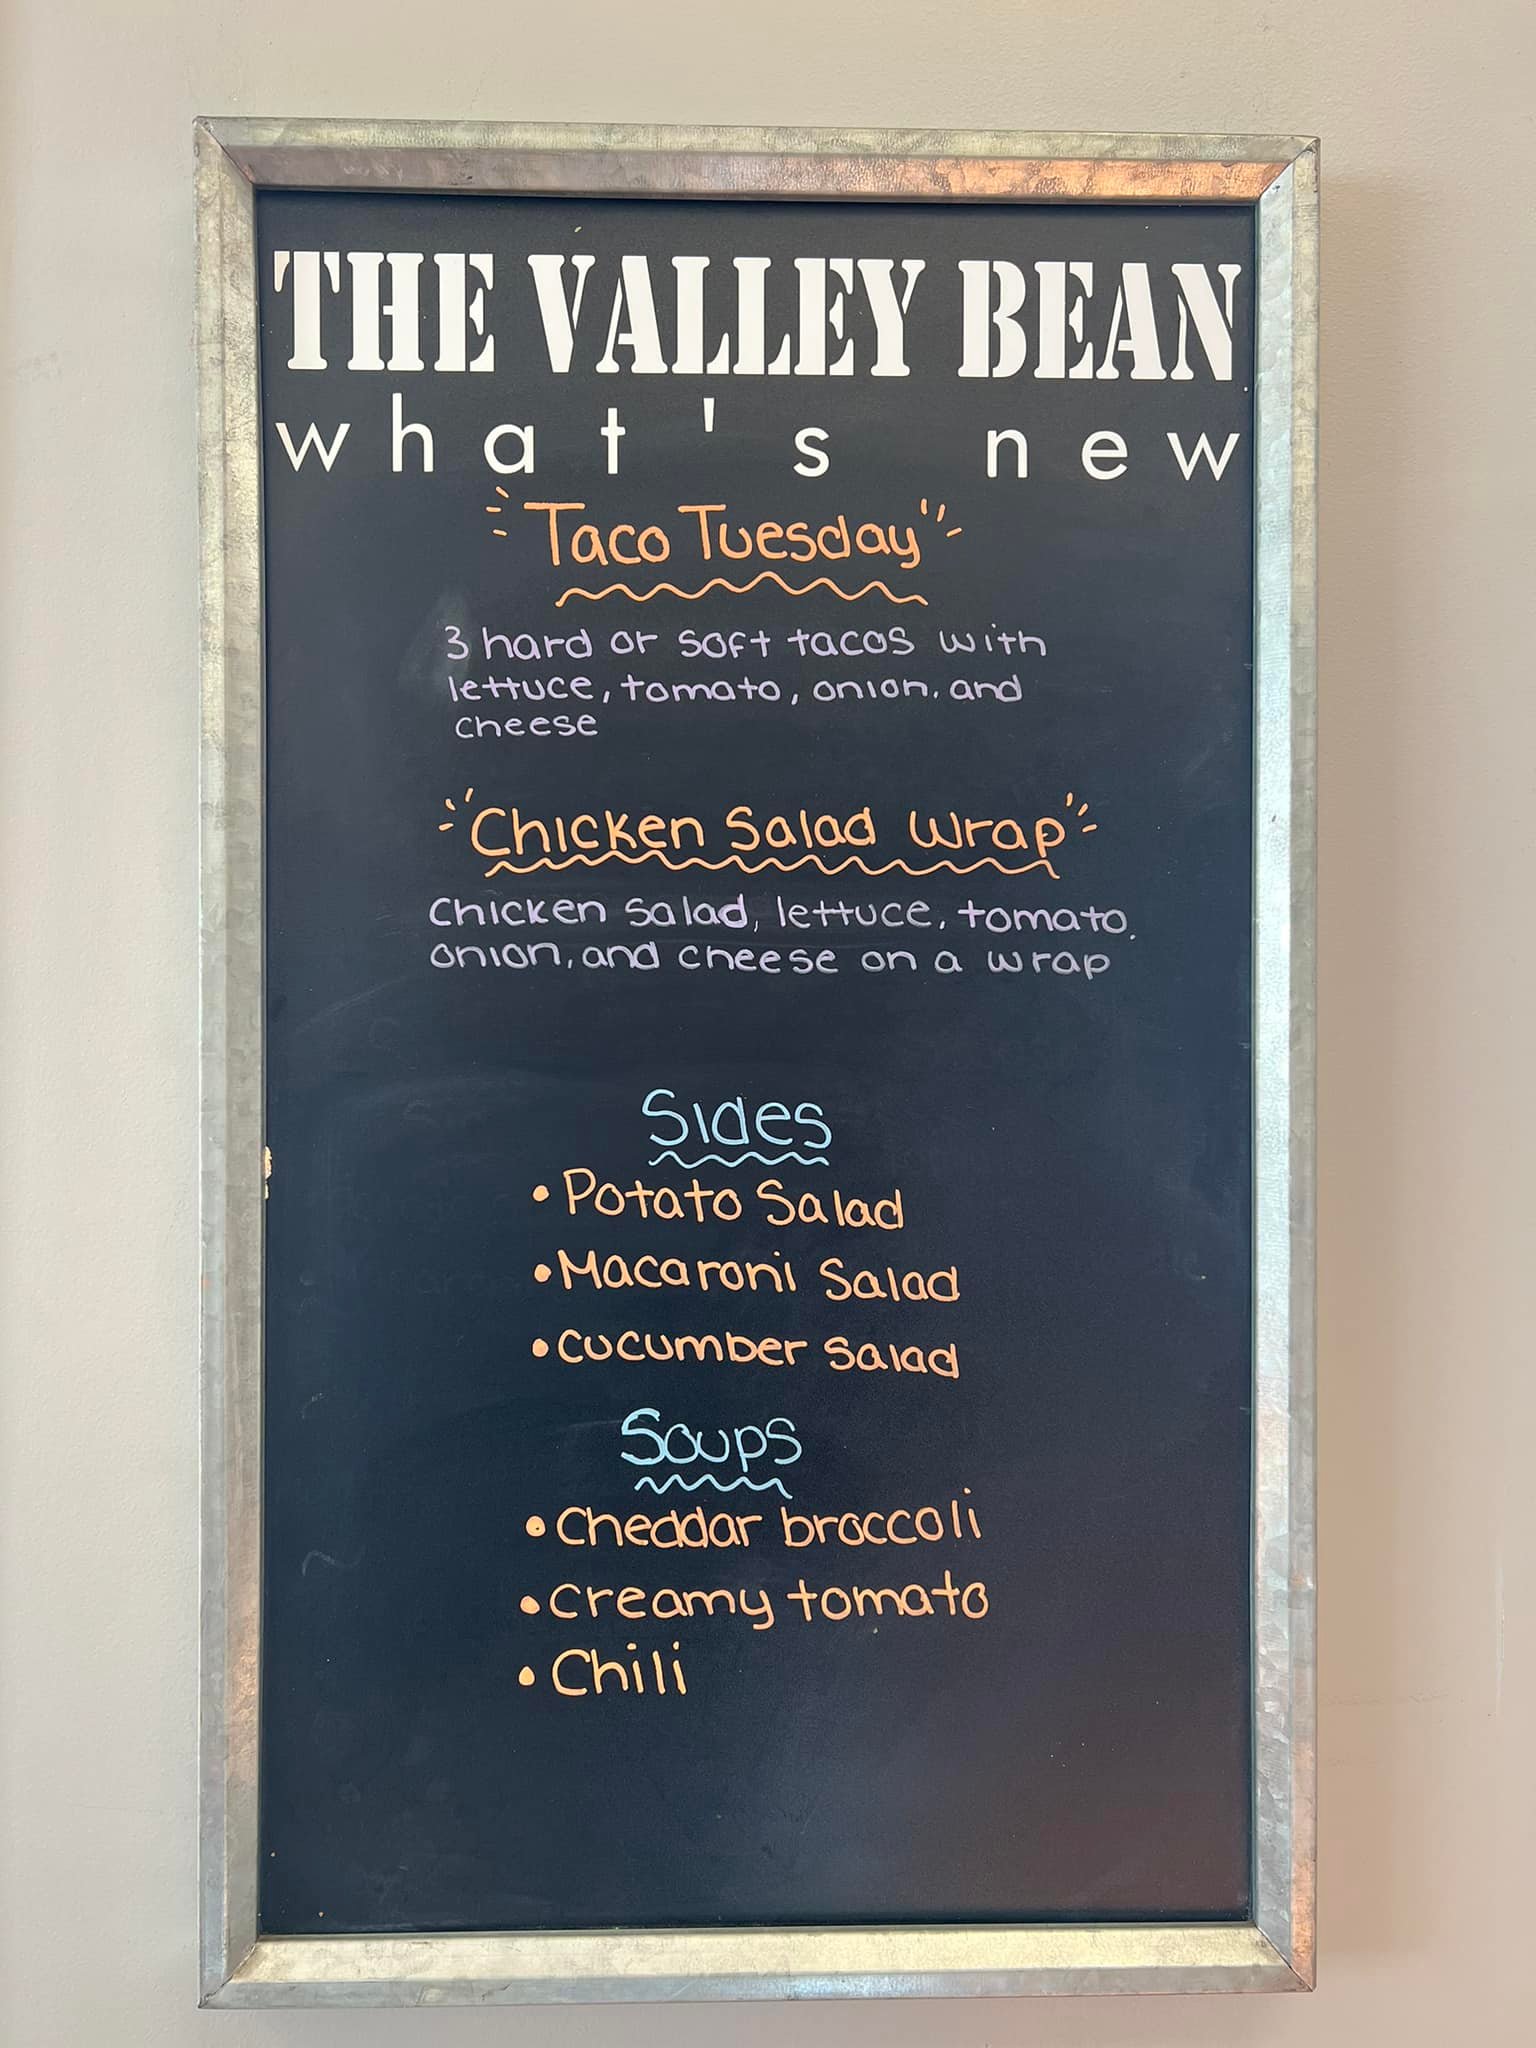 THE VALLEY BEAN
what's new
Taco Tuesday
3 hard or soft tacos with
lettuce, tomato, onion, and
cheese
Chicken Salad Wrap
Chicken Salad, lettuce, tomato,
onion, and cheese on a wrap
Sides
• Potato Salad
• Macaroni Salad
• Cucumber Salad
Soups
• Cheddar broccoli
• Creamy tomato
• Chili